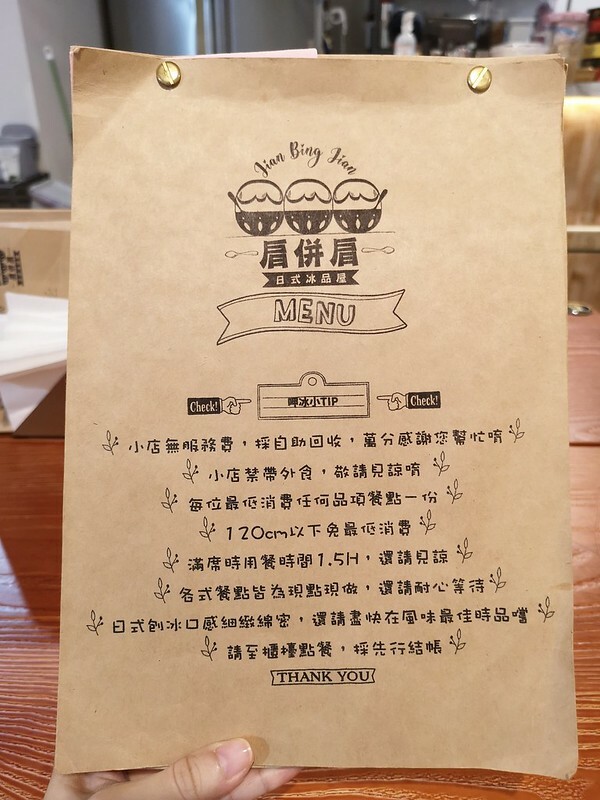 Jian Bing Jian
肩併肩
日式冰品屋
MENU
Check! 呷冰小TIP Check!
小店無服務費，採自助回收，萬分感謝您幫忙唷
小店禁帶外食，敬請見諒唷
每位最低消費任何品項餐點一份
120cm以下免最低消費
滿席時用餐時間1.5H，還請見諒
各式餐點皆為現點現做，還請耐心等待
日式刨冰口感細緻綿密，還請盡快在風味最佳時品嚐
請至櫃檯點餐，採先行結帳
THANK YOU